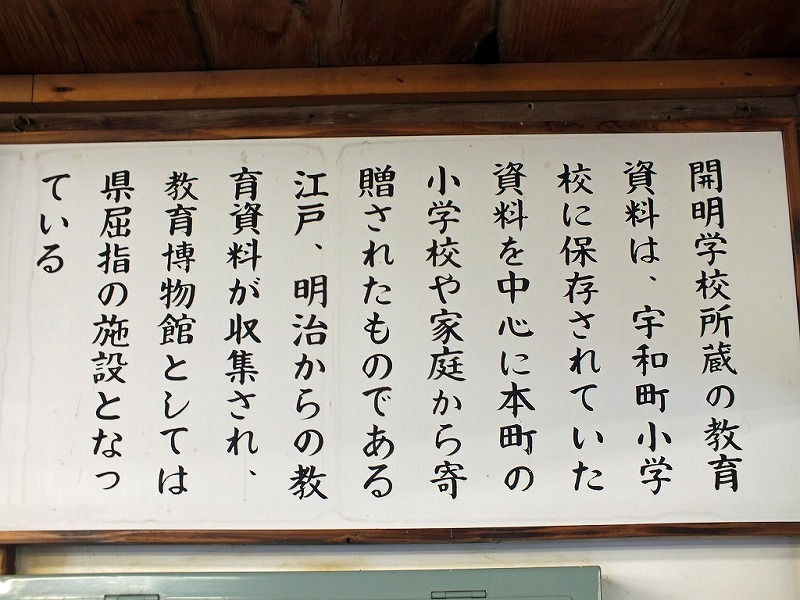 開明学校所蔵の教育
資料は、宇和町小学
校に保存されていた
資料を中心に本町の
小学校や家庭から寄
贈されたものである
江戸、明治からの教
育資料が収集され、
教育博物館としては
県屈指の施設となっ
ている